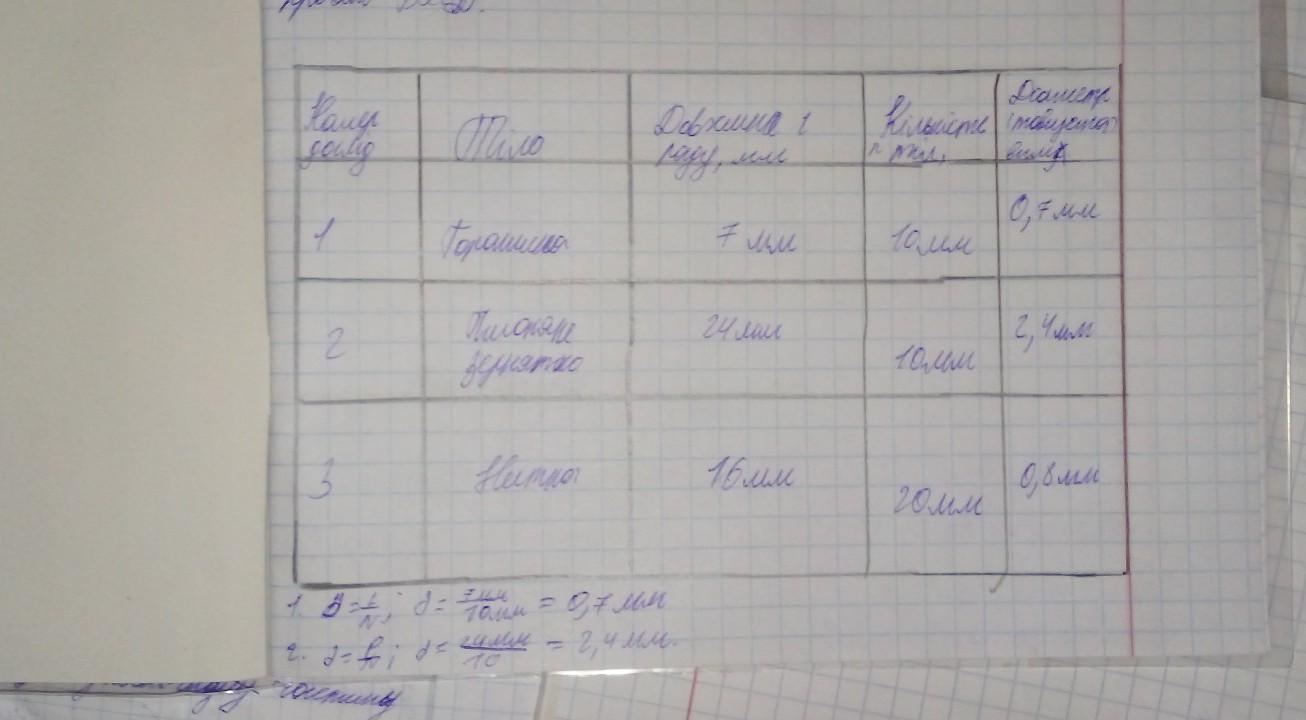 Номер досліду
Тіло
Довжина l ряду, мм
Кількість n
Діаметр
1
7 мм
10мм
0,7мм
2
Пшоняне зернятко
24мм
10мм
2,4мм
3
Нитка
16мм
20мм
0,8мм
1. d = l/n; d = 7мм/10мм = 0,7мм
2. d = l/n; d = 24мм/10 = 2,4мм.
частину